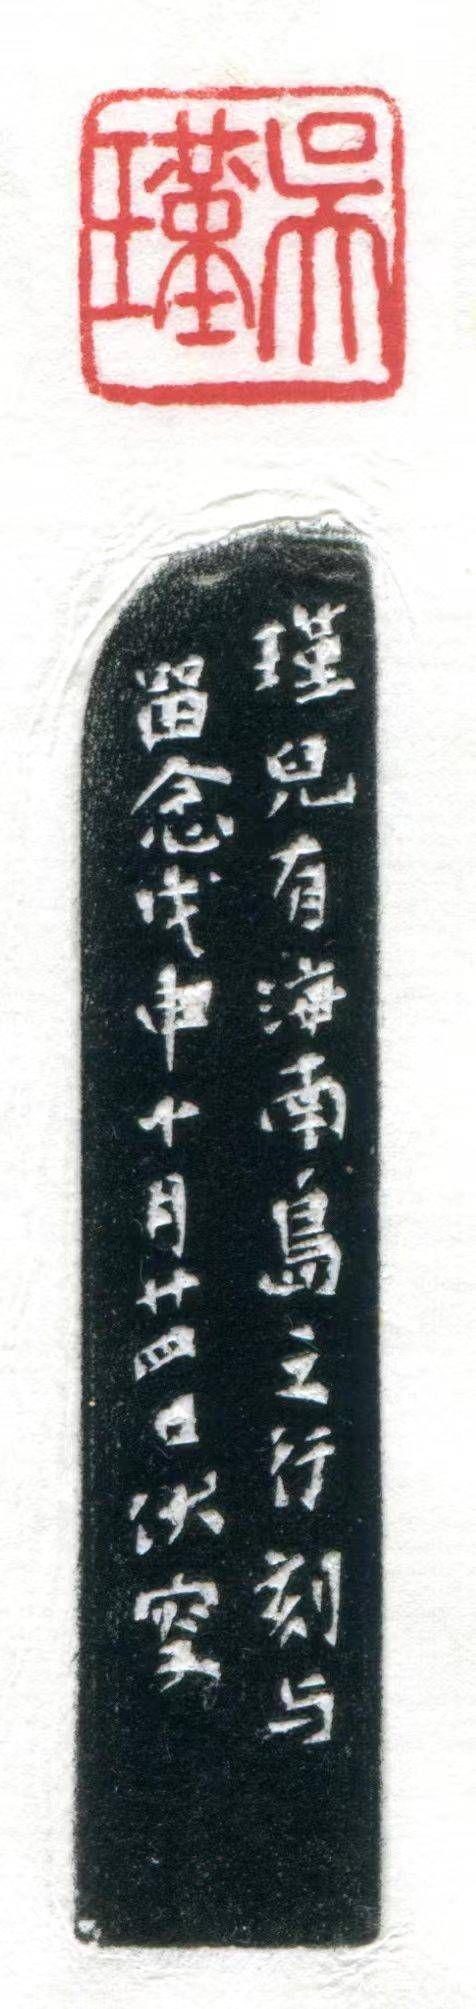 吴瑾
瑾兒有海南島之行刻与
留念戊申十月廿四日伏窒